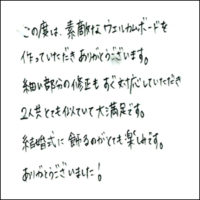 この度は、素敵なウェルカムボードを
作っていただきありがとうございます。
細い部分の修正もすぐ対応していただき
2人共とても似ていて大満足です。
結婚式に飾るのがとても楽しみです。
ありがとうございました!